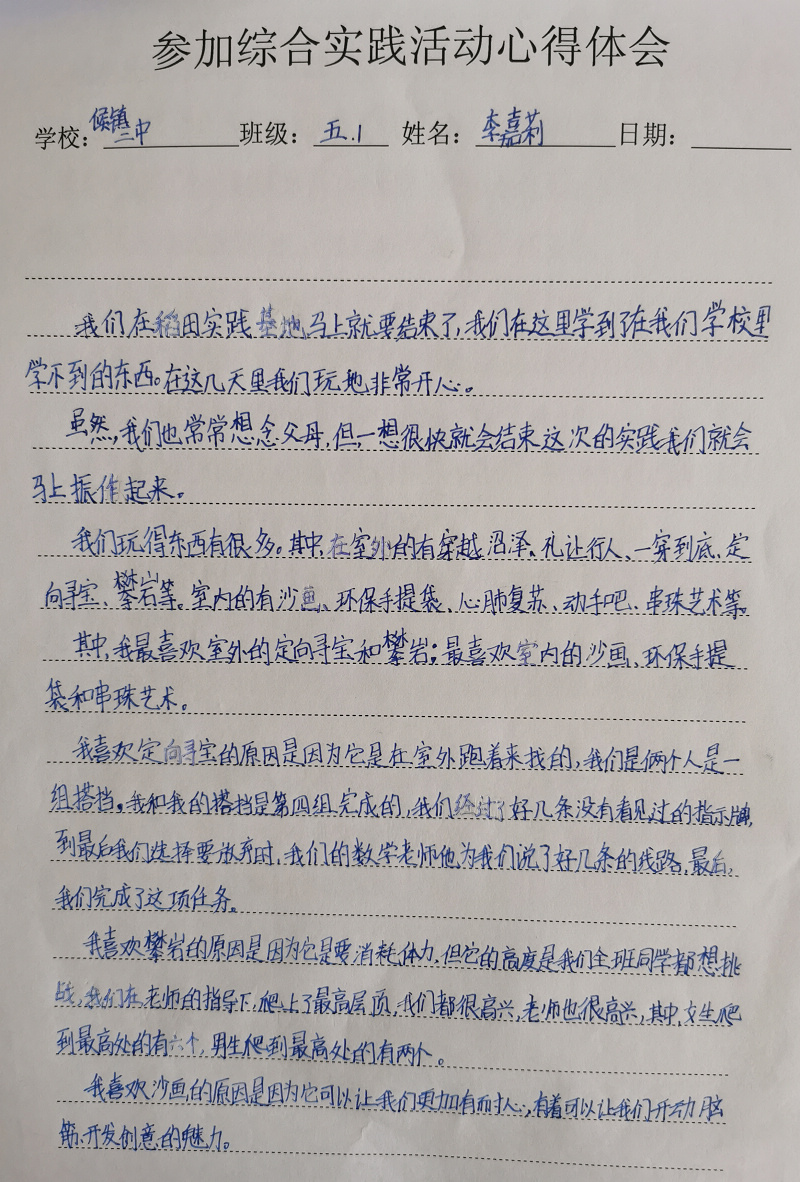 参加综合实践活动心得体会
学校：侯镇二中 班级：五.1 姓名：李嘉莉 日期：
我们在稻田实践基地马上就要结束了，我们在这里学到了在我们学校里
学不到的东西。在这几天里我们玩地非常开心。
虽然，我们也常常想念父母，但一想很快就会结束这次的实践我们就会
马上振作起来。
我们玩得东西有很多。其中，在室外的有穿越沼泽、礼让行人、一穿到底、定
向寻宝、攀岩等。室内的有沙画、环保手提袋、心肺复苏、动手吧、串珠艺术等。
其中，我最喜欢室外的定向寻宝和攀岩；最喜欢室内的沙画、环保手提
袋和串珠艺术。
我喜欢定向寻宝的原因是因为它是在室外跑着来找的，我们是俩个人是一
组搭挡。我和我的搭挡是第四组完成的，我们经过了好几条没有看见过的指示牌，
到最后我们选择要放弃时，我们的数学老师他为我们说了好几条的线路，最后，
我们完成了这项任务。
我喜欢攀岩的原因是因为它是要消耗体力，但它的高度是我们全班同学都想挑
战，我们在老师的指导下，爬上了最高层顶，我们都很高兴，老师也很高兴，其中，女生爬
到最高处的有六个，男生爬到最高处的有两个。
我喜欢沙画的原因是因为它可以让我们更加有耐心，有着可以让我们开动脑
筋、开发创意的魅力。